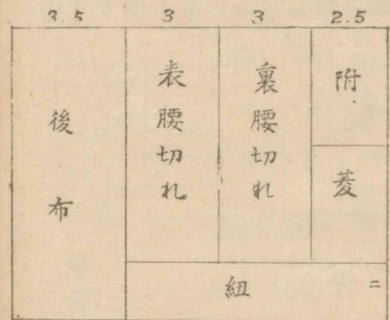 3.5 3 3 2.5
後布
表腰切れ
裏腰切れ
附
菱
紐 二